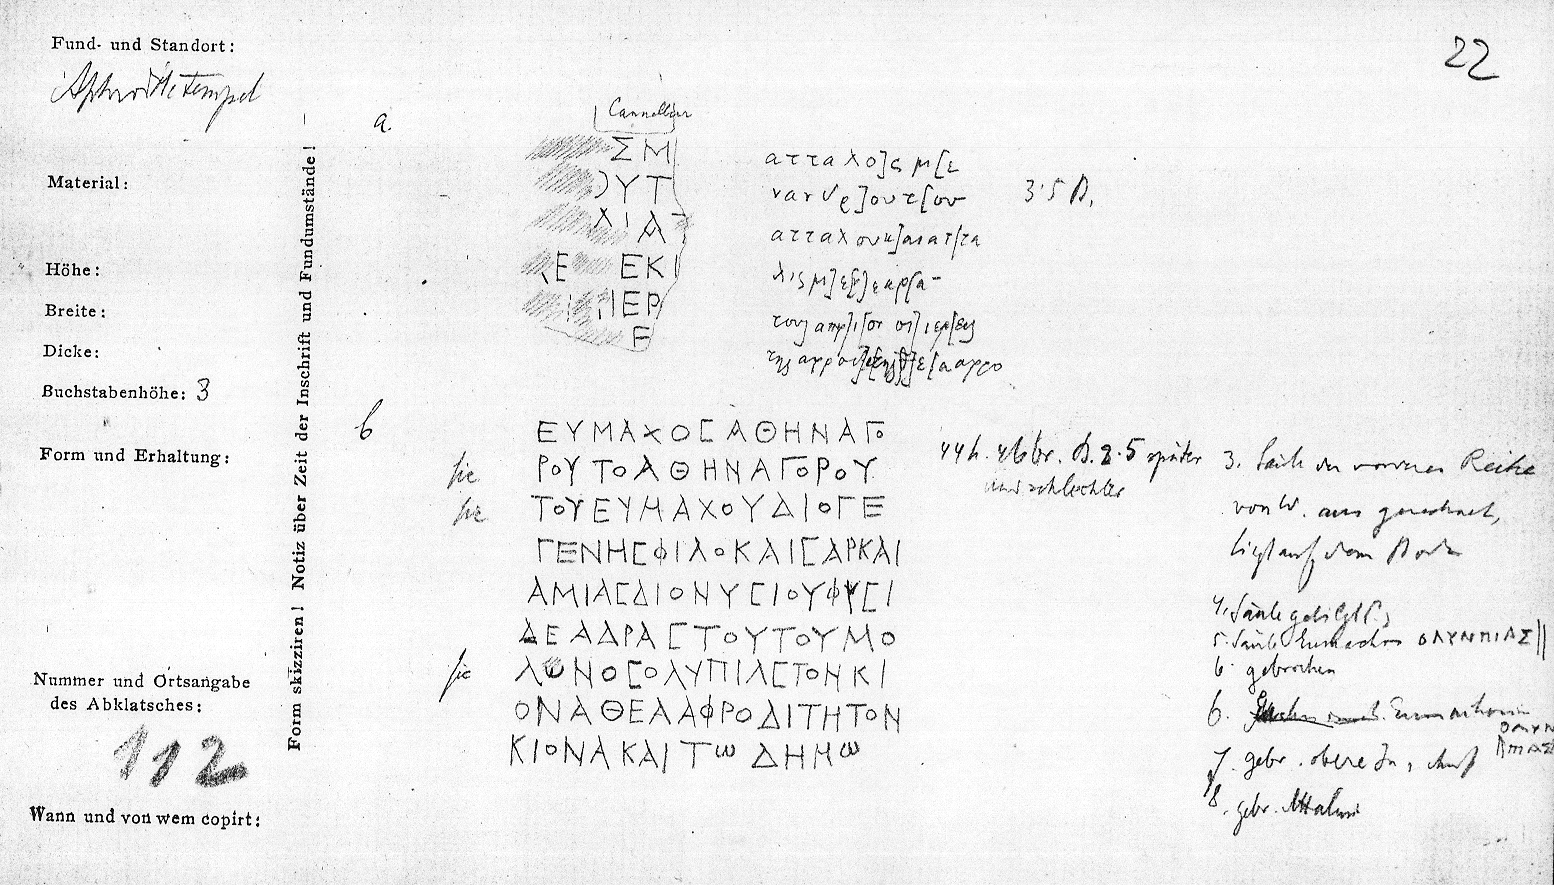 22
Fund- und Standort:
Aphrodite tempel
Material:
Höhe:
Breite:
Dicke:
Buchstabenhöhe: 3
Form und Erhaltung:
Nummer und Ortsangabe
des Abklatsches:
112
Wann und von wem copirt:
Form skizziren! Notiz über Zeit der Inschrift und Fundumstände!
a.
ΣΜ
ΟΥΤ
ΑΙΑΤ
Ε ΕΚΙ
ΙΕΡ
Ε
ατταλο]ς με[
]ουτ[ου
ατταλου κ]αι ατ[τα
3·5 B.
b
ΕΥΜΑΧΟϹΑΘΗΝΑΓΟ
sic ΡΟΥΤΟΑΘΗΝΑΓΟΡΟΥ
sic ΤΟΥΕΥΜΑΧΟΥΔΙΟΓΕ
ΓΕΝΗϹΦΙΛΟΚΑΙϹΑΡΚΑΙ
ΑΜΙΑϹΔΙΟΝΥϹΙΟΥΦΥϹΙ
ΔΕΑΔΡΑϹΤΟΥΤΟΥΜΟ
sic ΛΩΝΟϹΟΛΥΠΙΑϹΤΟΝΚΙ
ΟΝΑΘΕΑΑΦΡΟΔΙΤΗΤΟΝ
ΚΙΟΝΑΚΑΙΤωΔΗΜω
44 h. 46 br. B. 2·5 später
und schlechter
3. Säule der vorderen Reihe
von W. aus gerechnet,
liegt auf dem Boden
5. Säule Eumachos ΟΛΥΝΠΙΑΣ
6 gebrochen
6.
7. gebr. obere In, auf
8. gebr. Attalos